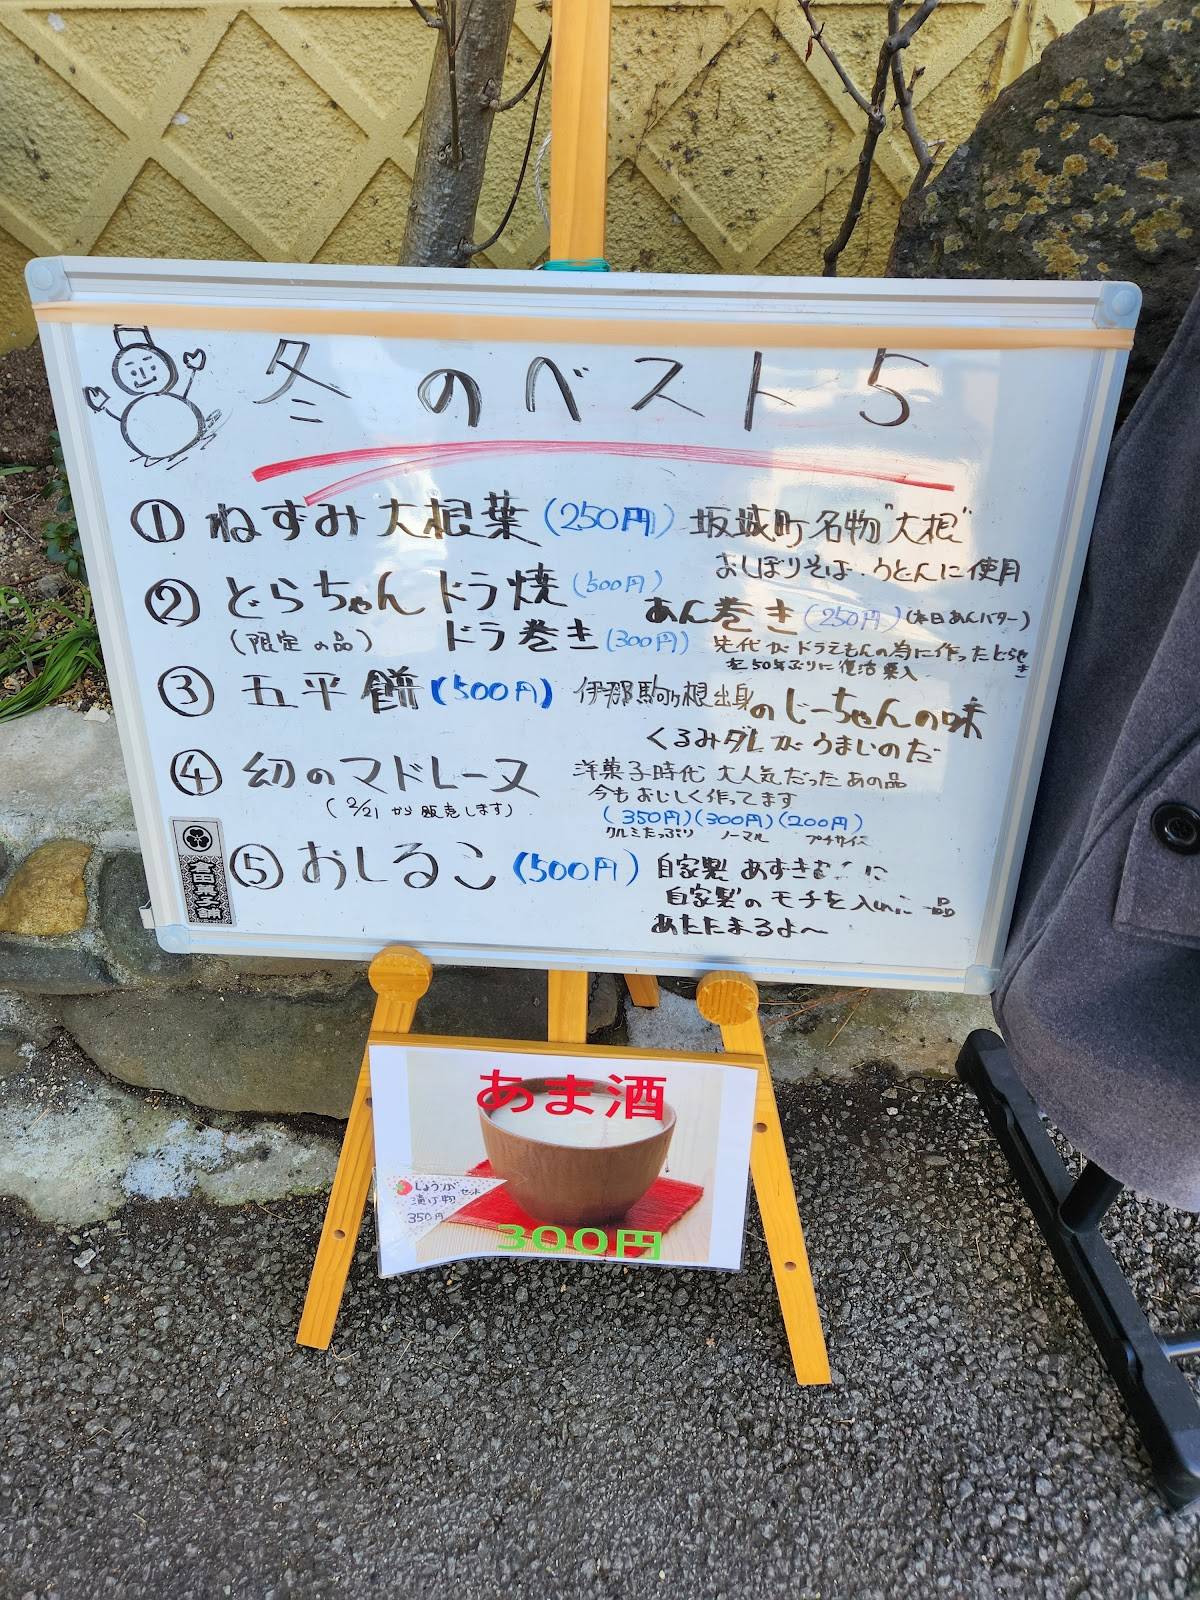 冬のベスト5
① ねずみ大根葉 (250円) 坂城町名物"大根"
おしぼりそば・うどんに使用
② どらちゃん ドラ焼 (500円)
あん巻き (250円) (本日あんバター)
(限定の品) ドラ巻き (300円)
先代がドラえもんの為に作ったどらやき
を50年ぶりに復活
③ 五平餅 (500円) 伊那駒ヶ根出身のじーちゃんの味
くるみダレがうまいのだ
④ 幻のマドレーヌ 洋菓子時代 大人気だったあの品
(2/21から販売します) 今もおいしく作ってます
(350円) (300円) (200円)
クルミたっぷり ノーマル プチサイズ
⑤ おしるこ (500円) 自家製 あずき に
自家製のモチを入れた一品
あたたまるよ〜
宮田菓子舗
あま酒
しょうが
漬け物
セット
350円
300円